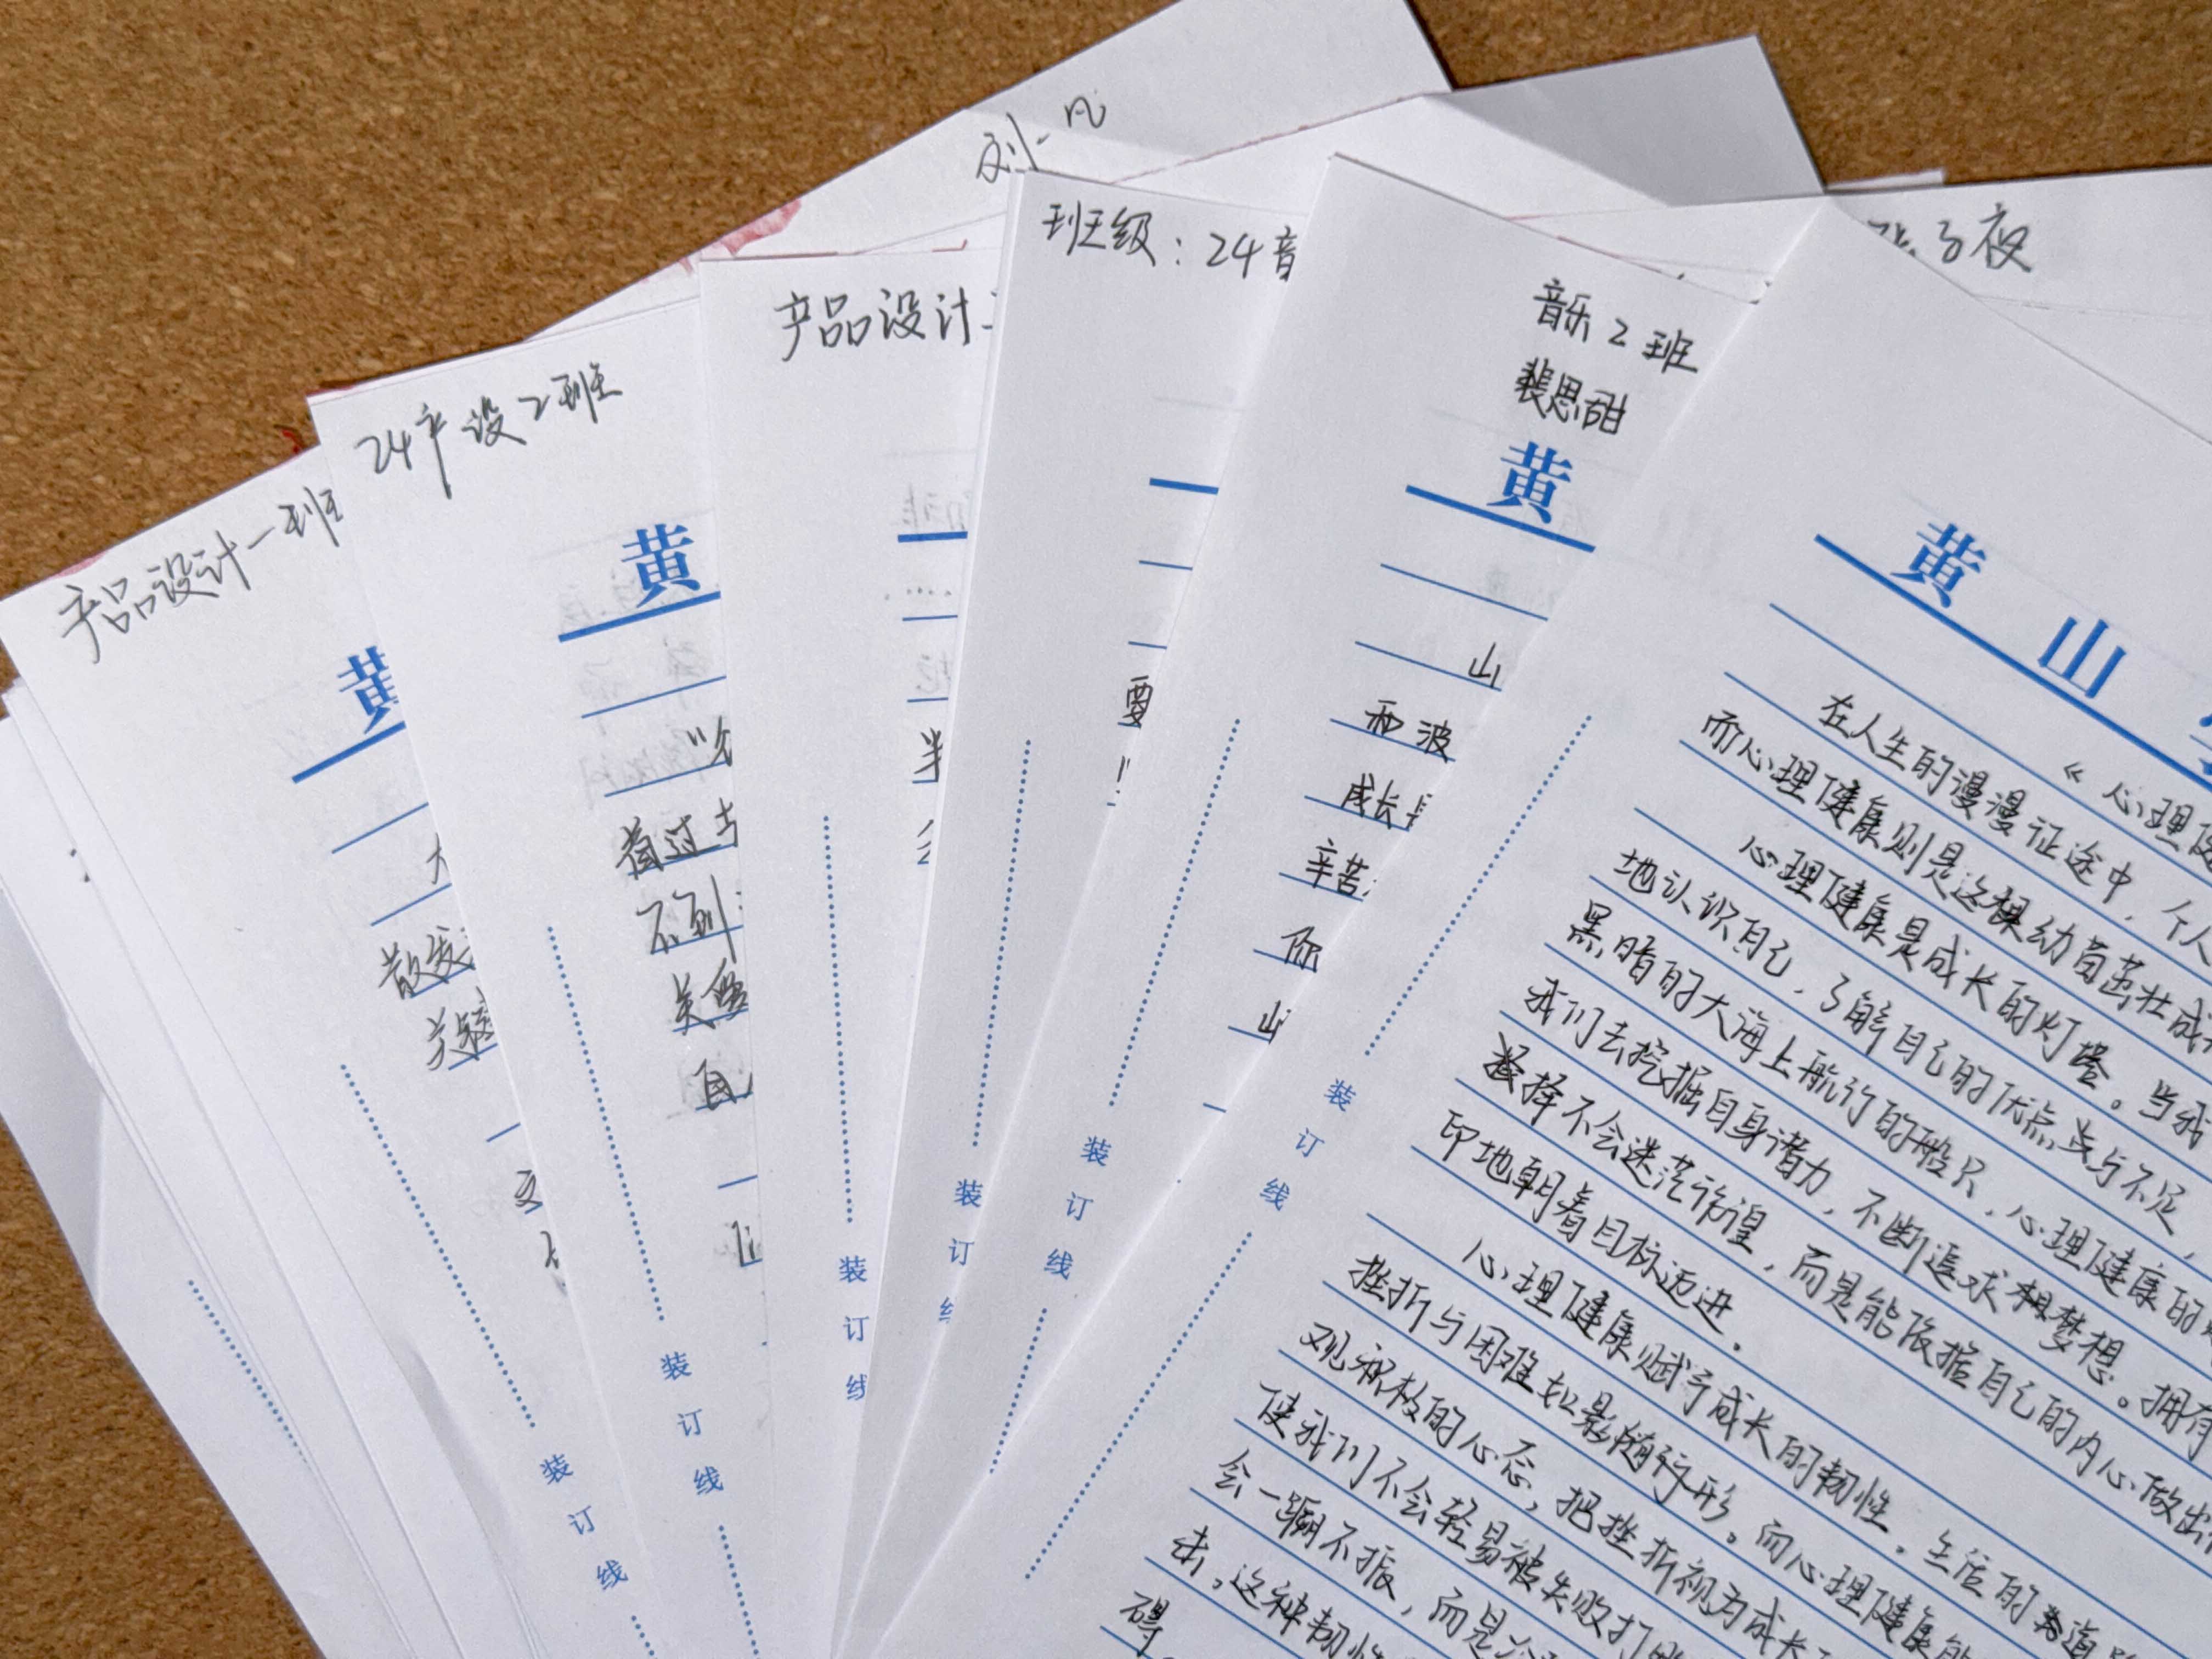 刘一凡
子夜
班级：24音
产品设计
音乐2班
裴思甜
24产设2班
产品设计一班
黄
黄
黄
黄山
《心理健
在人生的漫漫征途中，个人
而心理健康则是这棵幼苗茁壮成
心理健康是成长的灯塔。当我
地认识自己，了解自己的优点与不足，
黑暗的大海上航行的船只，心理健康的
我们去挖掘自身潜力，不断追求梦想。拥有
择不会迷茫彷徨，而是能依据自己的内心做出
印地朝着目标迈进。
心理健康赋予成长的韧性。生活的道
挫折与困难如影随行形。而心理健康能
观积极的心态，把挫折视为成长
使我们不会轻易被失败打
会一蹶不振，而是
击，这种韧性
碍
山
和波
成长
辛苦
你
山
要
半
着过
不到
关爱
自
散发
关键
装订线
装订线
装订线
装订线
装订线
装订线